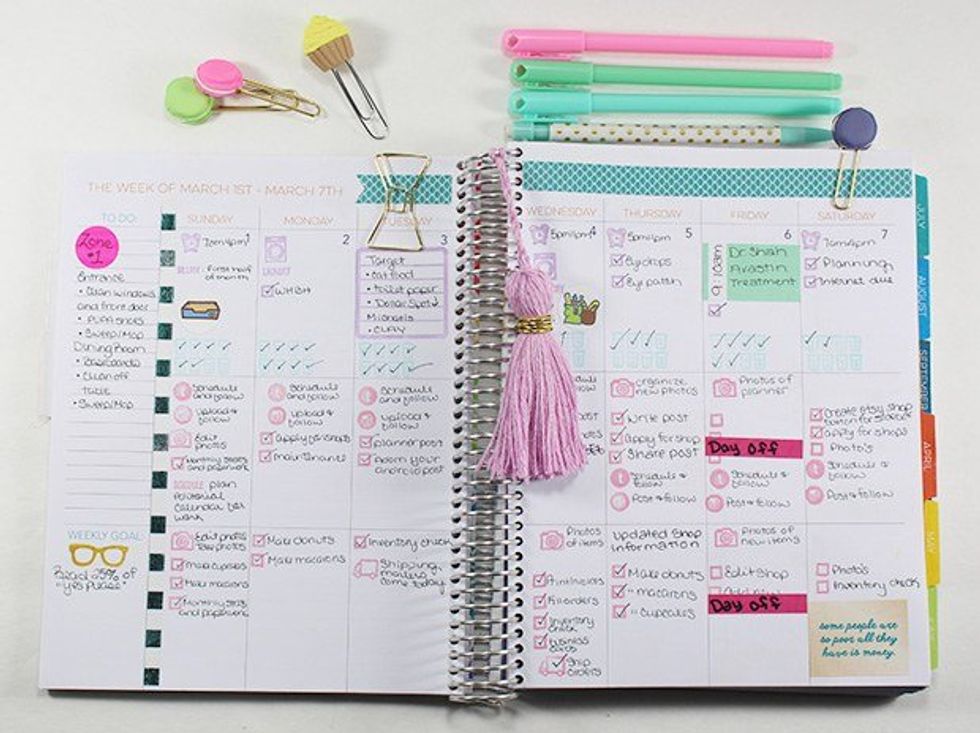 THE WEEK OF MARCH 1ST - MARCH 7TH
TO DO:
Zone
#1
Entrance
• Clean windows
and front door
• Sweep/Mop
Dining Room
• Baseboards
• Clean off
table
• Sweep/Mop
WEEKLY GOAL:
Read 25% of
"yes please"
SUNDAY
1
First half
of month
Schedule
and follow
Upload &
follow
Edit
photos
Monthly stats
and paperwork
plan
Editorial
Calendar
work
Edit photos
Take photos
Make cupcakes
Make macarons
Monthly stats
and paperwork
MONDAY
2
WHBM
Schedule
and follow
Upload &
follow
Apply for shops
maintenance
Make donuts
Make macarons
TUESDAY
3
Target
• Cat food
• Toilet paper
• Dollar Spot
Michaels
• CLAY
Schedule
and follow
Upload &
follow
planner post
Inventory check
Shipping
mailers
come today
WEDNESDAY
4
Photos
of items
Inventory
check
Business
cards
Ship
orders
THURSDAY
5
Eye drops
Eye patch
organize
new photos
Write post
Apply for shop
Share post
Schedule &
follow
Post & follow
Updated Shop
Information
Make donuts
" macarons
" cupcakes
FRIDAY
6
9:10am
Dr. Shah
Avastin
Treatment
Photos of
planner
Day off
Schedule &
follow
Post & follow
Photos of
new items
Edit Shop
Day off
SATURDAY
7
7am-4pm
Planning
Internet due
Create etsy shop
button for sidebar
Apply for shops
Photo's
Schedule &
follow
Post & follow
Photo's
Inventory check
some people are
so poor all they
have is money.
JULY
AUGUST
SEPTEMBER
APRIL
MAY